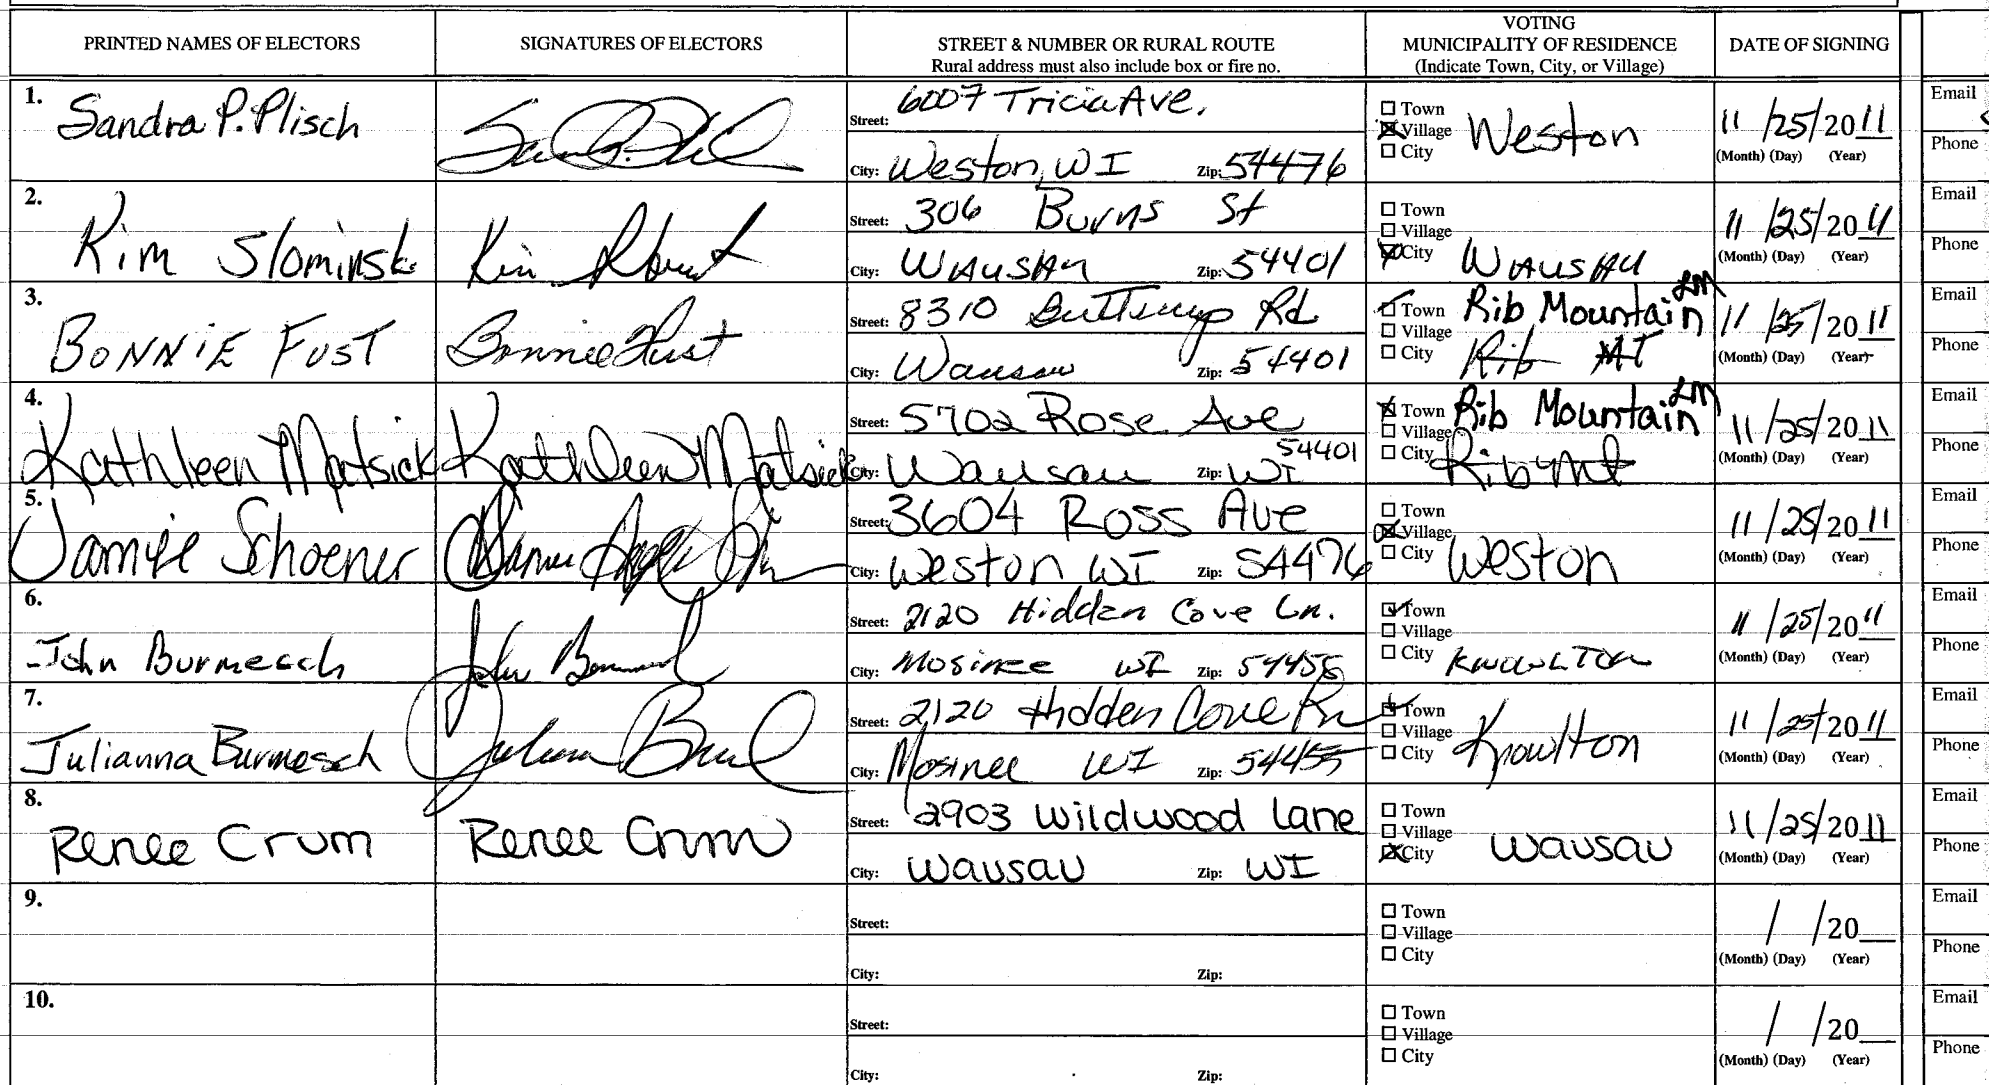 PRINTED NAMES OF ELECTORS
SIGNATURES OF ELECTORS
STREET & NUMBER OR RURAL ROUTE
Rural address must also include box or fire no.
VOTING
MUNICIPALITY OF RESIDENCE
(Indicate Town, City, or Village)
DATE OF SIGNING
1.
Sandra P. Plisch
Street: 6007 Tricia Ave.
City: Weston, WI Zip: 54476
Town
Village
City
Weston
11/25/2011
(Month) (Day) (Year)
Email
Phone
2.
Kim Slominski
Kim
Street: 306 Burns St
City: WAUSAU Zip: 54401
Town
Village
City
WAUSAU
11/25/2011
(Month) (Day) (Year)
Email
Phone
3.
BONNIE FUST
Bonnie Fust
Street: 8310 Buttercup Rd
City: Wausau Zip: 54401
Town
Village
City
Rib Mountain LM
Rib MT
11/25/2011
(Month) (Day) (Year)
Email
Phone
4.
Kathleen Matsick
Kathleen Matsick
Street: 5702 Rose Ave
54401
City: Wausau Zip: WI
Town
Village
City
Rib Mountain LM
Rib Mt
11/25/2011
(Month) (Day) (Year)
Email
Phone
5.
Schoener
Street: 3604 Ross Ave
City: Weston WI Zip: 54476
Town
Village
City
Weston
11/25/2011
(Month) (Day) (Year)
Email
Phone
6.
John Burmesch
John
Street: 2120 Hidden Cove Ln.
City: Mosinee WI Zip: 54455
Town
Village
City
KNOWLTON
11/25/2011
(Month) (Day) (Year)
Email
Phone
7.
Julianna Burmesch
Street: 2120 Hidden Cove Ln
City: Mosinee WI Zip: 54455
Town
Village
City
Knowlton
11/25/2011
(Month) (Day) (Year)
Email
Phone
8.
Renee Crum
Renee Crum
Street: 2903 Wildwood Lane
City: Wausau Zip: WI
Town
Village
City
Wausau
11/25/2011
(Month) (Day) (Year)
Email
Phone
9.
Street:
City: Zip:
Town
Village
City
/ /20
(Month) (Day) (Year)
Email
Phone
10.
Street:
City: Zip:
Town
Village
City
/ /20
(Month) (Day) (Year)
Email
Phone